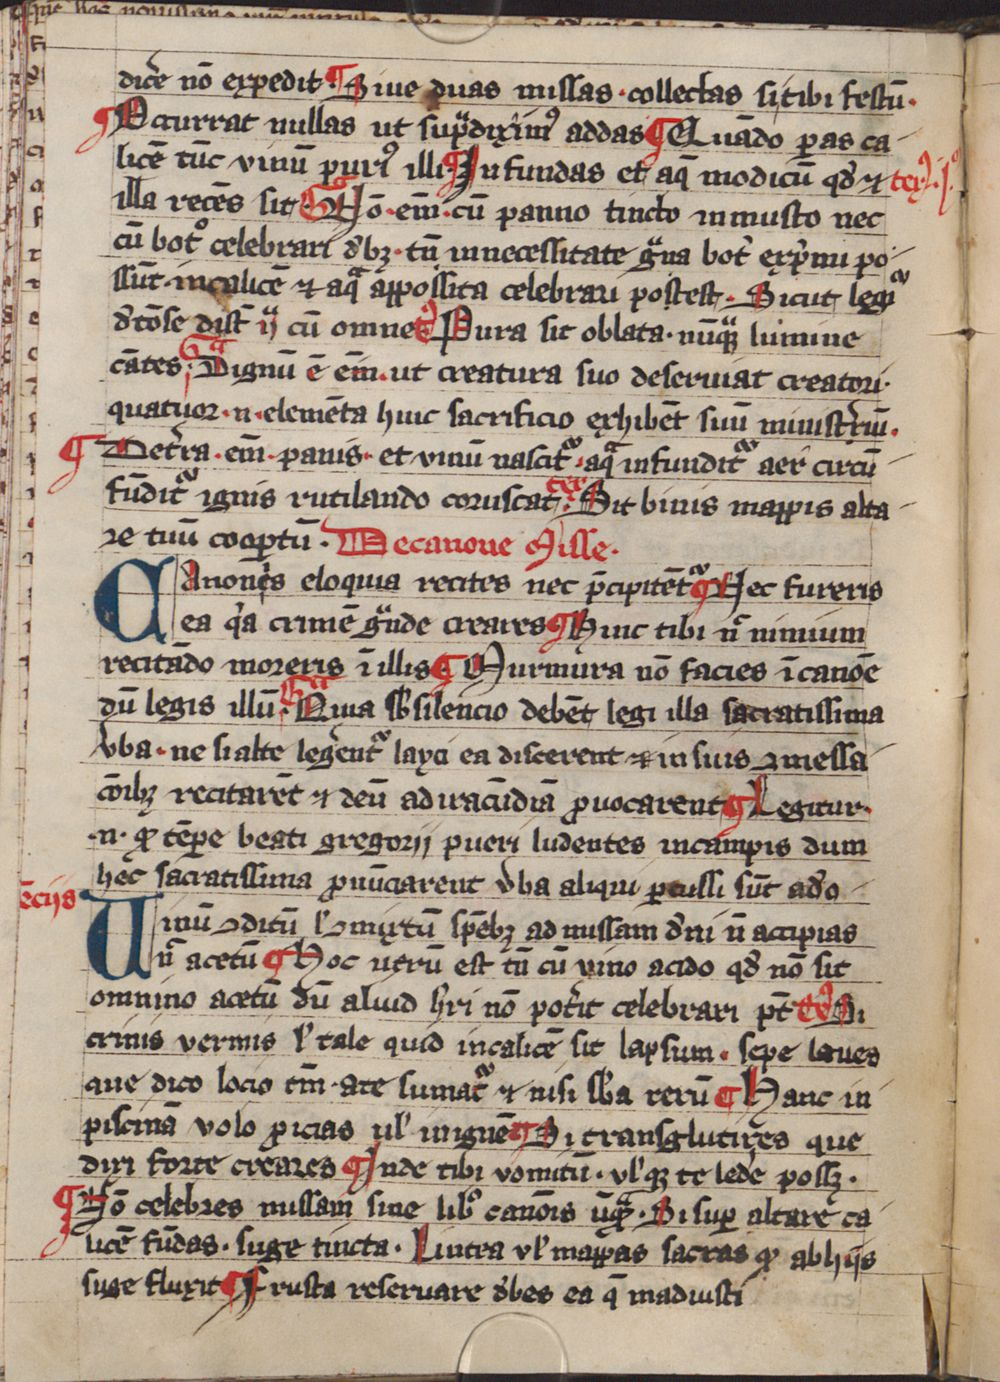 dicẽ nõ expedit ¶ Siue duas missas · collectas si tibi festũ ·
¶ Occurrat nullas ut sup̃dixim⁹ addas ¶ Quãdo p̱as ca
licẽ tũc vinũ puri⁹ illi ¶ Infundas et aq̃ modicũ qđ ⁊
illa recẽs sit Nõ · em̃ · cũ panno tincto in musto nec
cũ bot⁰ celebrari dꝫ · tñ in necessitate g̃ua bot᷒ exp̃mi po
ssũt · in calicẽ ⁊ aq̃ apposita celebrari postest · Sicut legi
cũ omne Pura sit oblata · nũq̃ lumine
cãtes · Dignũ ẽ em̃ · ut creatura suo deseruiat creatori ·
quatuor · n · elemẽta huic sacrificio exhibẽt suũ minist̃iũ ·
¶ De t̃ra · em̃ · panis · et vinũ nascit᷒ · aq̃ infundit᷒ aer circũ
fũdit᷒ ignis rutilando coruscat Sit binis mappis alta
re tuũ cooptũ · De canone Misse ·
Canonẽs eloquia recites nec p̃cipitẽt᷒ ¶ Nec fureris
ea q̃a crimẽ g̃nde creares ¶ Hinc tibi ñ nimium
recitãdo moreris ĩ illis ¶ Murmura nõ facies ĩ canõe
dũ legis illũ · Quia sb̃ silencio debẽt legi illa sacratissima
v̾ba · ne si alte leg̃ent᷒ layci ea discerent ⁊ in suis ꝯmessa
cõibꝫ recitarẽt ⁊ deũ ad iracũdiã ꝓuocarent ¶ Legitur ·
· n · ꝙ tẽpe beati gregorij pueri ludentes in campis dum
hec sacratissima ꝓnũciarent v̾ba aliqui ꝑcussi sũt a dõ
ẽcijs
Vinũ ꝯditũ ł mixtũ spẽbꝫ ad missam dñi ñ accipias
ñ acetũ ¶ Hoc verũ est tñ cũ vino acido qđ nõ sit
omnino acetũ dũ aliud h̾ri nõ pot̾it celebrari pt̃ Si
crinis vermis ł tale quid in calicẽ sit lapsum · sepe laues
que dico locio tm̃ a te sumat᷒ ⁊ nisi sb̃a rerũ ¶ Hanc in
piscinã volo ꝓicias uł in ignẽ ¶ Si transglutires que
dixi forte creares ¶ Inde tibi vomitũ · vłqꝫ te ledẽ possꝫ ·
¶ Nõ celebres missam sine lib⁰ canõis ũq̃ · Si sup̱ altare ca
licẽ fũdas · suge tincta · Lintea vł mappas sacras ꝙ ab hijs
suge fluxit ¶ Frusta reseruare dẽbes ea q̃ maduisti